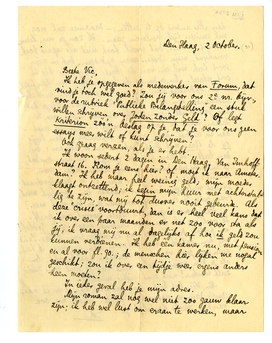 Den Haag, 2 October.
Beste Vic,
Ik heb je opgegeven als medewerker van Forum, dat
vind je toch wel goed? Zou jij voor ons 2e nr.
voor de rubriek "Publieke Belangstelling" een stuk
willen schrijven over Joden zonder Geld? Of legt
Kriterion zoo'n beslag op je dat je voor ons geen
essay meer wilt of kunt schrijven?
Ook graag verzen, als je ze hebt.
Ik woon sedert 2 dagen in Den Haag, Van
straat 1c. Kom je eens hier? of moet ik naar Amster-
dam? Ik heb maar heel weinig geld, mijn moeder
klaagt ontzettend, ik
lig te zijn, wat mij tot dusver nooit gebeurd. Als
deze crisis voortduurt, dan is er heel veel kans dat
ik over een paar maanden er net zoo voor sta als
jij; ik vraag mij nu al dagelijks af hoe ik geld zou
kunnen verdienen. Ik heb één kamer nu, met pension
en al voor fl. 90.; de menschen hier lijken me nogal
geschikt; zou ik over een tijdje weer ergens anders
heen moeten?
In ieder geval heb je mijn adres.
Mijn roman zal nog wel niet zoo gauw klaar
zijn; ik heb wel lust om eraan te werken, maar